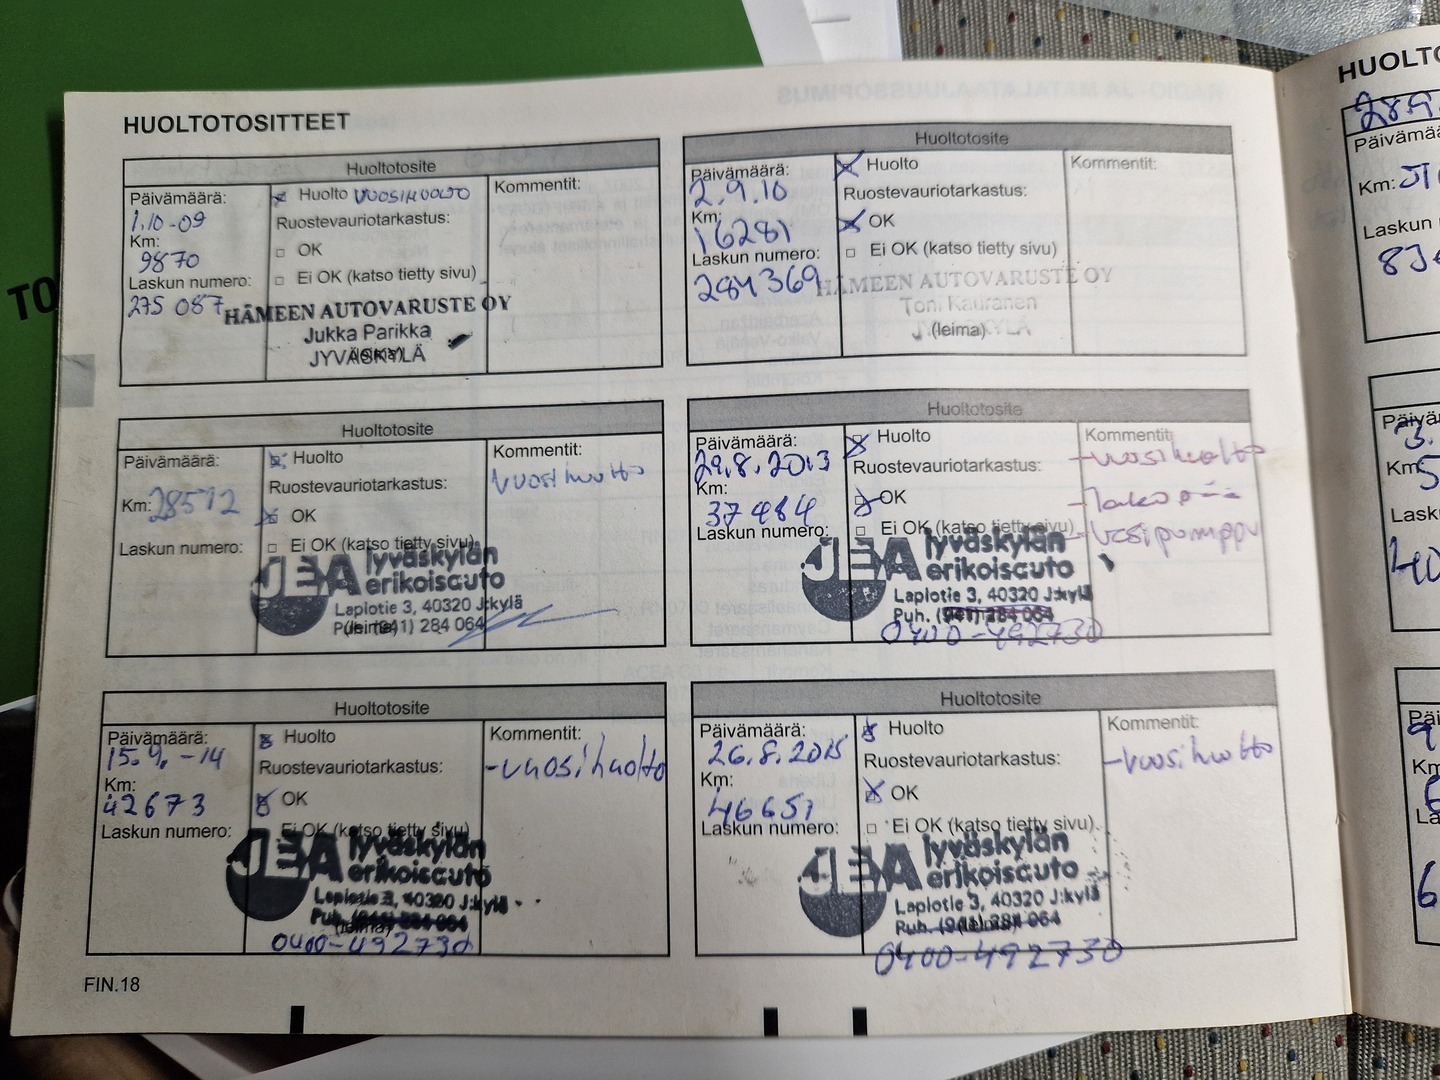 HUOLTOTOSITTEET
Huoltotosite
Päivämäärä:
1.10-09
Km:
9870
Laskun numero:
275 087
Huolto VUOSIHUOLTO
Ruostevauriotarkastus:
OK
Ei OK (katso tietty sivu)
HÄMEEN AUTOVARUSTE OY
Jukka Parikka
JYVÄSKYLÄ
Kommentit:
Huoltotosite
Päivämäärä:
2.9.10
Km:
16281
Laskun numero:
284369
Huolto
Ruostevauriotarkastus:
OK
Ei OK (katso tietty sivu)
HÄMEEN AUTOVARUSTE OY
Toni Kauranen
(leima)
JYVÄSKYLÄ
Kommentit:
Huoltotosite
Päivämäärä:
Km: 28512
Laskun numero:
Huolto
Ruostevauriotarkastus:
OK
Ei OK (katso tietty sivu)
JEA Jyväskylän
erikoisauto
Laplotie 3, 40320 J:kylä
Puh. (941) 284 064
(leima)
Kommentit:
Vuosihuolto
Huoltotosite
Päivämäärä:
29.8.2013
Km:
37484
Laskun numero:
Huolto
Ruostevauriotarkastus:
OK
Ei OK (katso tietty sivu)
JEA Jyväskylän
erikoisauto
Laplotie 3, 40320 J:kylä
Puh. (941) 284 064
0400-492730
Kommentit:
-vuosihuolto
-Jakopää
-Vesipumppu
Huoltotosite
Päivämäärä:
15.9.-14
Km:
42673
Laskun numero:
Huolto
Ruostevauriotarkastus:
OK
Ei OK (katso tietty sivu)
JEA Jyväskylän
erikoisauto
Laplotie 3, 40320 J:kylä
Puh. (941) 284 064
(leima)
0400-492730
Kommentit:
-vuosihuolto
Huoltotosite
Päivämäärä:
26.8.2015
Km:
46651
Laskun numero:
Huolto
Ruostevauriotarkastus:
OK
Ei OK (katso tietty sivu)
JEA Jyväskylän
erikoisauto
Laplotie 3, 40320 J:kylä
Puh. (941) 284 064
(leima)
0400-492730
Kommentit:
-vuosihuolto
FIN.18